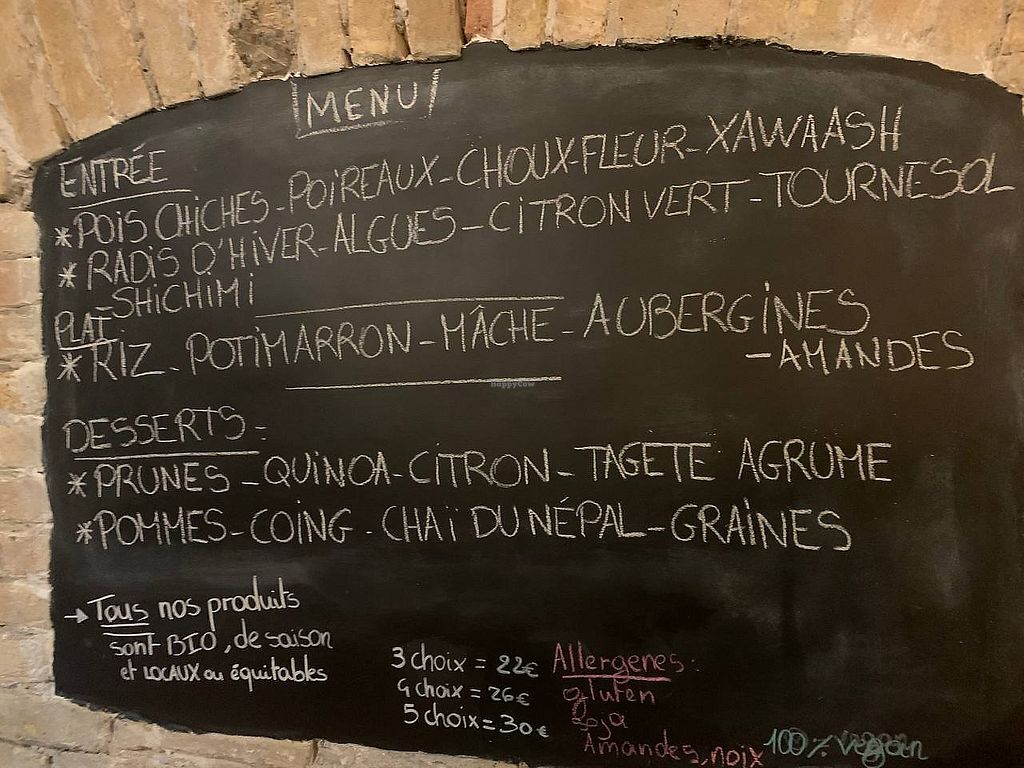 MENU
ENTRÉE
*POIS CHICHES-POIREAUX-CHOUX-FLEUR-XAWAASH
* RADIS D'HIVER-ALGUES-CITRON VERT-TOURNESOL
-SHICHIMI
PLAT
*RIZ-POTIMARRON-MÂCHE-AUBERGINES
-AMANDES
HappyCow
DESSERTS:
*PRUNES-QUINOA-CITRON-TAGETE AGRUME
*POMMES-COING-CHAÏ DU NÉPAL-GRAINES
→ Tous nos produits
sont BIO, de saison
et LOCAUX ou équitables
3 choix = 22€
4 choix = 26€
5 choix = 30€
Allergenes:
gluten
soja
Amandes, noix
100% vegan